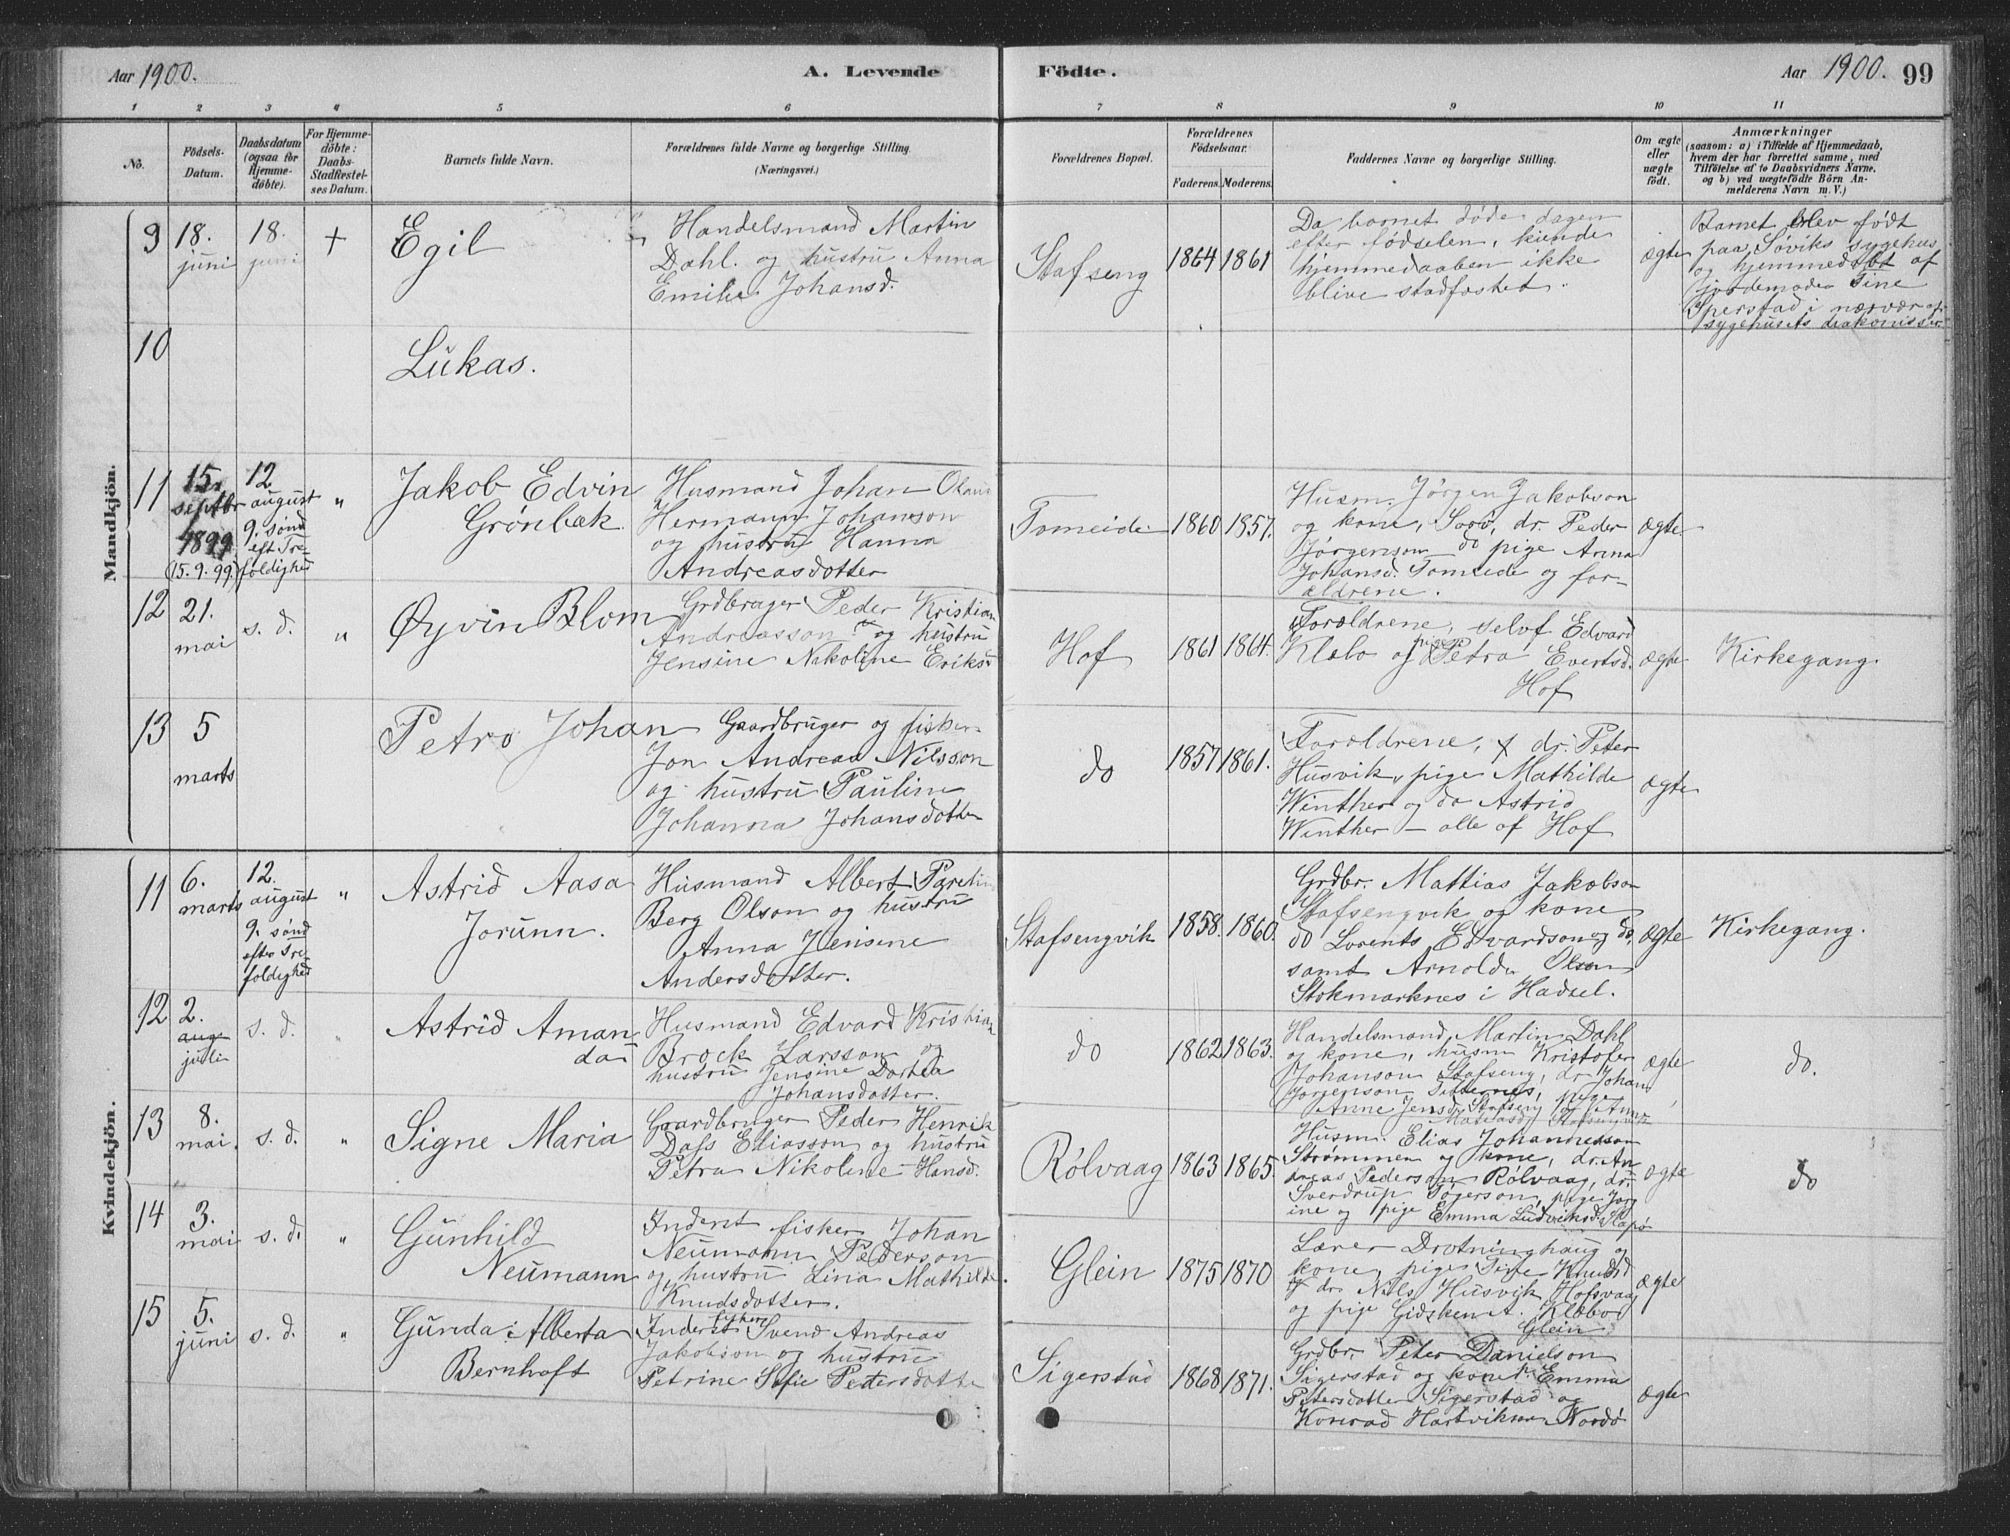 Aar 1900.
A. Levende
Födte.
Aar 1900. 99
1 2 3 4 5 6 7 8 9 10 11
No.
Födsels-
Datum.
Daabsdatum
(ogsaa for
Hjemme-
døbte).
For Hjemme-
döbte:
Daabs-
Stadfæstel-
ses Datum.
Barnets fulde Navn.
Forældrenes fulde Navne og borgerlige Stilling
(Næringsvei.)
Forældrenes Bopæl.
Forældrenes
Födselsaar.
Faderens. Moderens.
Faddernes Navne og borgerlige Stilling.
Om ægte
eller
uægte
født.
Anmærkninger
(saasom: a) i Tilfælde af Hjemmedaab,
hvem der har forrettet samme, med
Tilföielse af to Daabsvidners Navne,
og b) ved uægtefödte Börn An-
melderens Navn m. V.)
Mandkjön.
9
18.
juni
18.
juni
+
Egil
Handelsmand Martin
Dahl. og hustru Anna
Emilie Johansd.
Stafseng
1864 1861
Da barnet døde dagen
efter fødselen, kunde
hjemmedaaben ikke
blive stadfæsted.
ægte
Barnet blev født
paa Søviks sygehus
og hjemmedøbt af
jordemoder Tine
Sperstad i nærvær af
sygehusets diakonisser
10
Lukas.
11
15.
septbr
1899
(15.9.99)
12
august
9. sønd
eft Tre-
foldighed
"
Jakob Edvin
Grønbæk
Husmand Johan Olaus
Hermann Johanson
og hustru Hanna
Andreasdotter
Tomeide
1860 1857.
Husm. Jørgen Jakobson
og kone, Sovø, dr. Peder
Jørgenson do pige Anna
Johansd. Tomeide og for-
ældrene.
ægte
12
21.
mai
s. d.
"
Øyvin Blom
Grdbruger Peder Kristian
Andreasson og hustru
Jensine Nikoline Eriksd
Hof
1861 1864.
Forældrene, selvf Edvard
Klæbo og pige Petra Evertsd.
Hof
ægte
Kirkegang.
13
5
marts
Petro Johan
Gaardbruger og fisker
Jon Andreas Nilsson
og hustru Pauline
Johanna Johansdotter
do
1857 1861.
Forældrene, dr. Peter
Husvik, pige Mathilde
Winther og do Astrid
Winther — alle af Hof
ægte
Kvindekjön.
11
6.
marts
12.
august
9. sønd
efter Tre-
foldighed
"
Astrid Aasa
Jorunn.
Husmand Albert
Berg Olson og hustru
Anna Jensine
Andersdotter.
Stafsengvik
1858. 1860.
Grdbr. Mattias Jakobson
Stafsengvik og kone
do Lorents Edvardson og do,
samt Arnolda Olson
Stokmarknes i Hadsel.
ægte
Kirkegang.
12
2.
aug
juli
s. d.
"
Astrid Aman
da
Husmand Edvard Kristian
Brock Larsson og
hustru Jensine Dortea
Johansdotter.
do
1862 1863.
Handelsmand Martin Dahl
og kone, husm Kristofer
Johanson Stafseng, dr Johan
Jørgenson
Anne Jensd. Stafseng og
ægte
do.
13
8.
mai
s. d.
"
Signe Maria
Gaardbruger Peder Henrik
Dass Eliasson og hustru
Petra Nikoline Hansd.
Rølvaag
1863 1865.
Husm. Elias Johannesson
Strømmen og kone, dr. An
dreas Pederson Rølvaag, dr.
Sverdrup pige Jørg
ine og pige Emma Ludviksd.
ægte
do
14
3.
mai
s. d.
"
Gunhild
Neumann
Inderst fisker Johan
Neumann Pederson
og hustru Lina Mathilde
Knudsdotter.
Glein
1875 1870
Lærer Drotninghaug og
kone, pige Knudsd
og dr Nils Husvik Hofsvaag
og pige Gidsken A. Klæbo
Glein
ægte
15
5.
juni
s. d.
"
Gunda Alberta
Bernhoft
Inderst fisker Svend Andreas
Jakobson og hustru
Petrine Sofie Pedersdotte
Sigerstad
1868 1871.
Grdbr. Peter Danielson
Sigerstad og kone Emma
Petersdotter Sigerstad og
Konrad Nordø
ægte